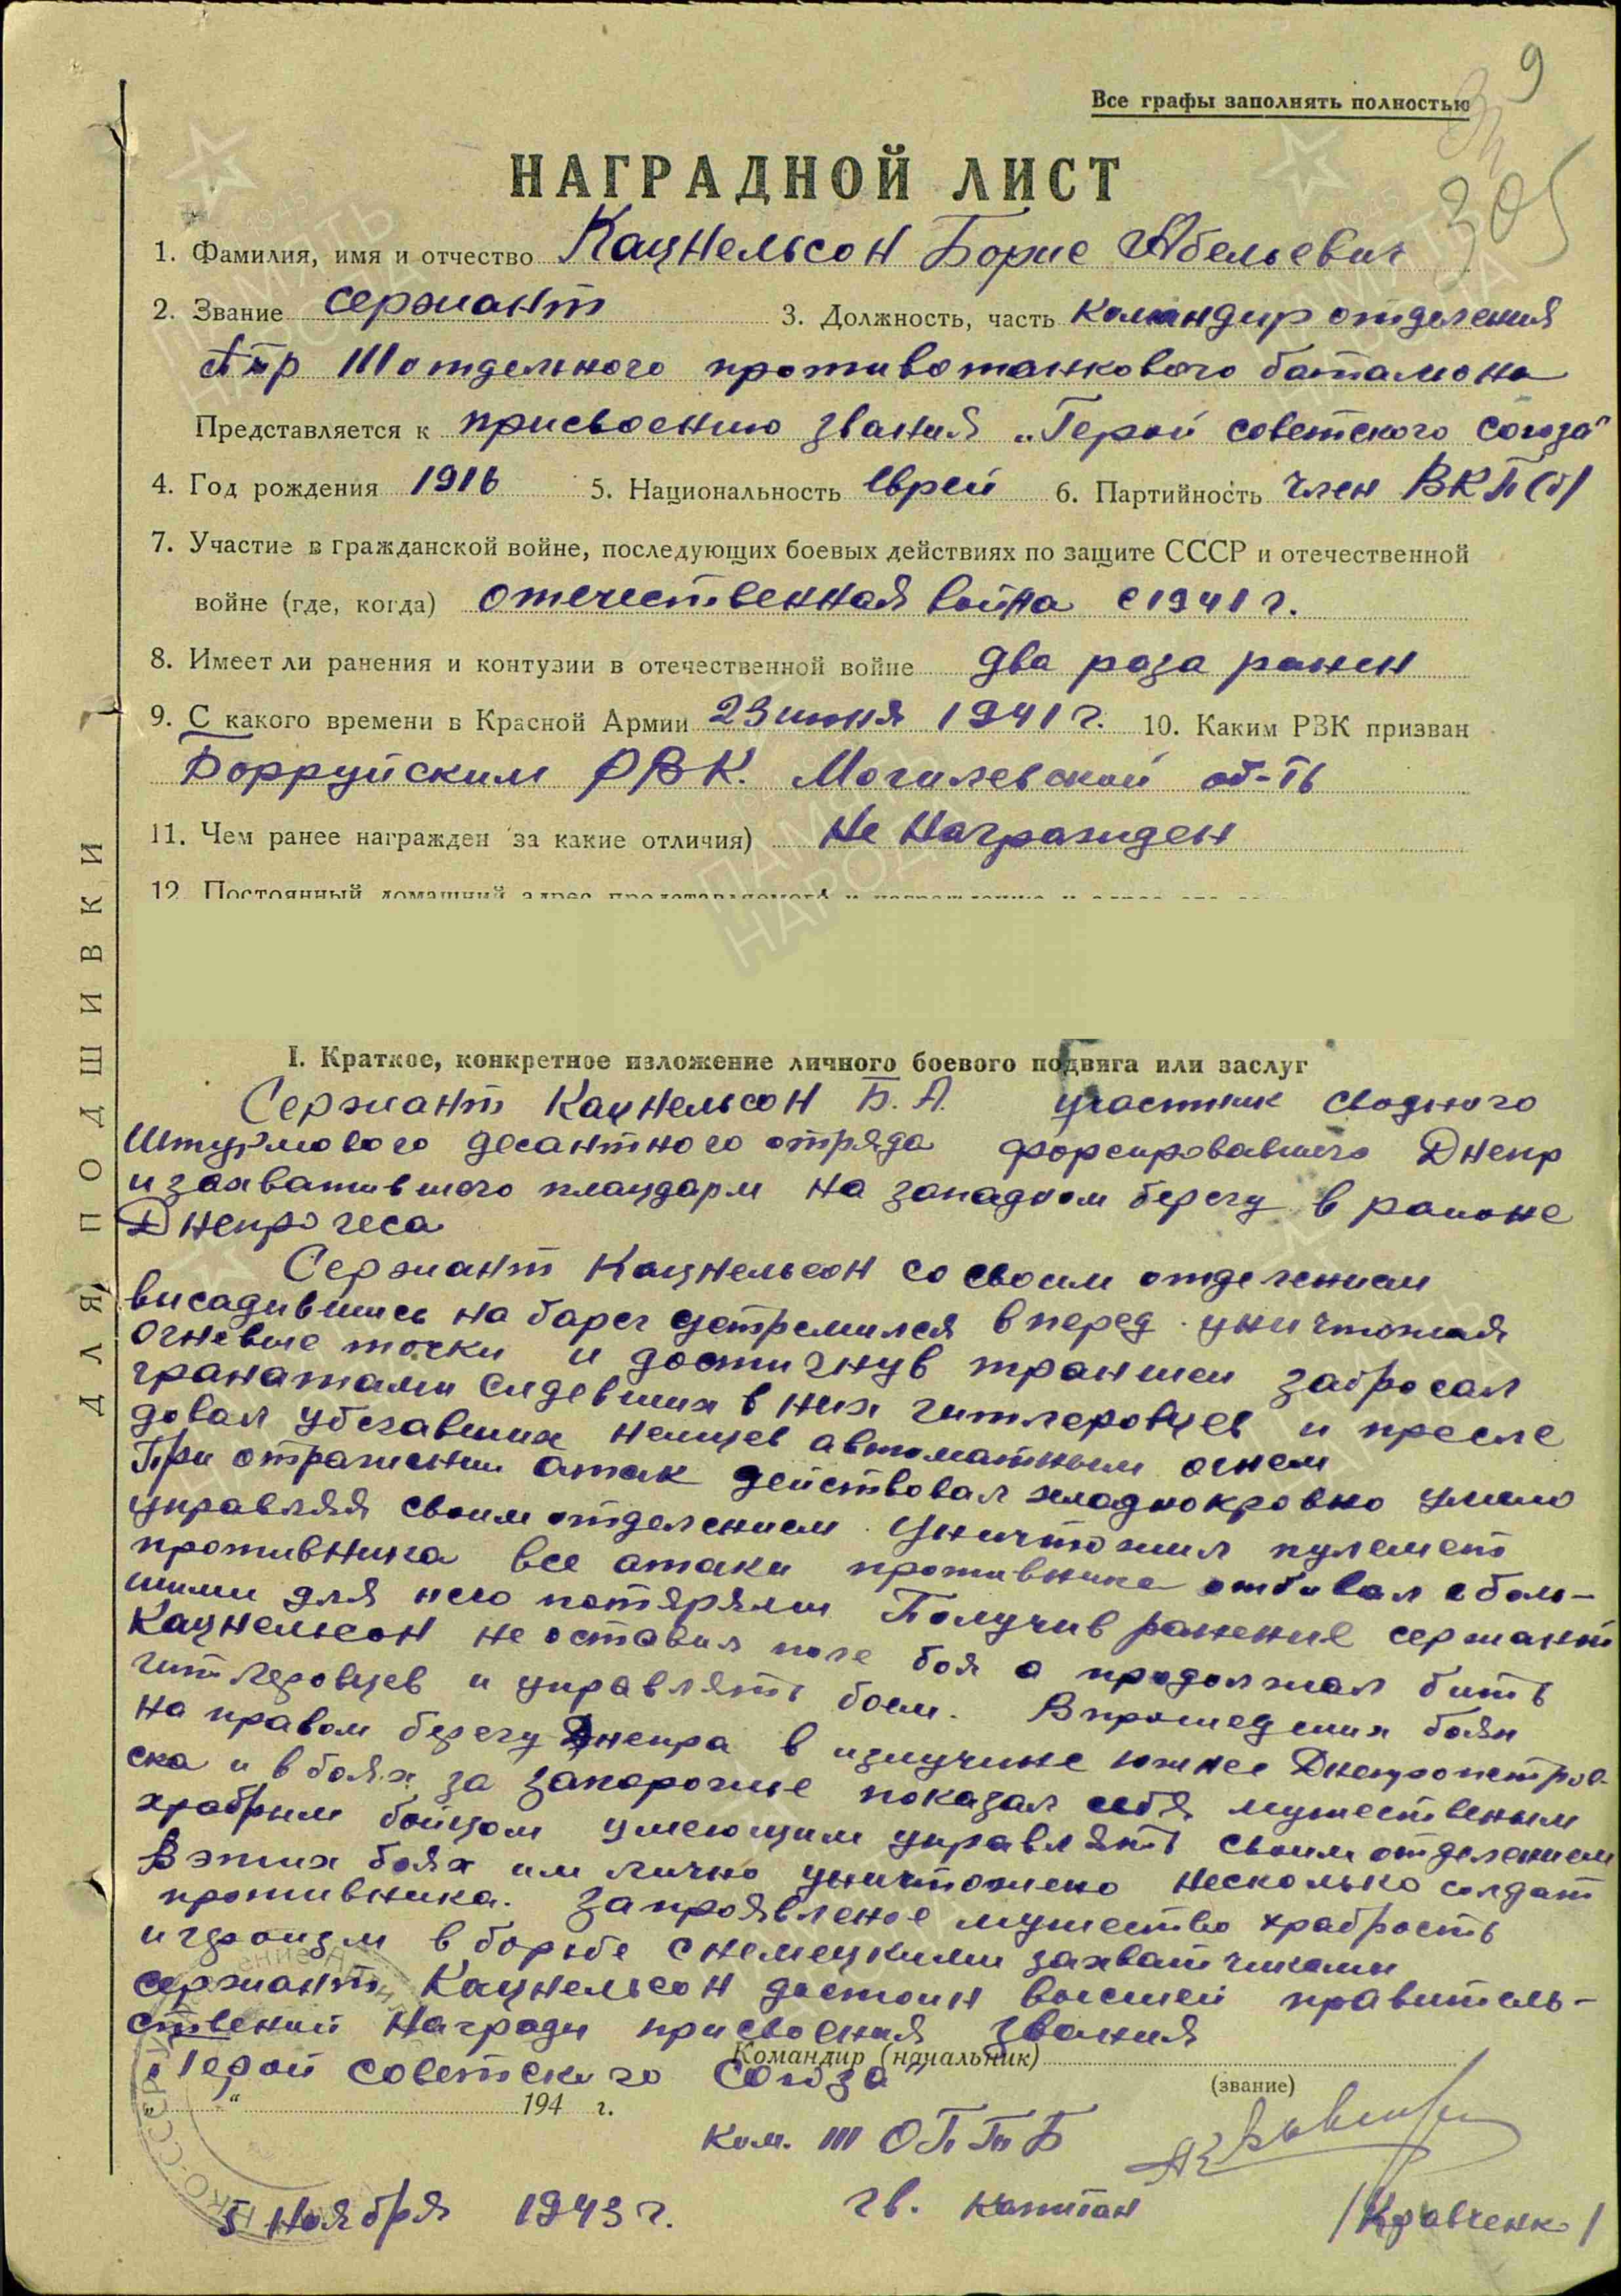 9
Все графы заполнять полностью
305
НАГРАДНОЙ ЛИСТ
1. Фамилия, имя и отчество Кацнельсон Борис Абельевич
2. Звание сержант 3. Должность, часть командир отделения
птр III отдельного противотанкового баталиона
Представляется к присвоению звания „Герой советского союза"
4. Год рождения 1916 5. Национальность еврей 6. Партийность член ВКП(б)
7. Участие в гражданской войне, последующих боевых действиях по защите СССР и отечественной
войне (где, когда) отечественная война с 1941 г.
8. Имеет ли ранения и контузии в отечественной войне два раза ранен
9. С какого времени в Красной Армии 23 июня 1941 г. 10. Каким РВК призван
Борруйским РВК. Могилевской об-ть
11. Чем ранее награжден за какие отличия) Не награжден
12. Постоянный домашний адрес представляемого к награждению и адрес его
ДЛЯ ПОДШИВКИ
I. Краткое, конкретное изложение личного боевого подвига или заслуг
Сержант Кацнельсон Б. А. участник сводного
штурмового десантного отряда форсировавшего Днепр
и захватившего плацдарм на западном берегу в районе
Днепрогеса
Сержант Кацнельсон со своим отделением
высадившись на барег устремился вперед уничтожая
огневые точки и достигнув траншеи забросал
гранатами сидевших в них гитлеровцев и пресле
довал убегавших немцев автоматным огнем
При отражении атак действовал хладнокровно умело
управляя своим отделением. Уничтожил пулемет
противника все атаки противника отбивал с боль-
шими для него потярями Получив ранение сержант
Кацнельсон не оставил поле боя а продолжал бить
гитлеровцев и управлять боем. В прошедших боях
на правом берегу Днепра в излучине южнее Днепропетров-
ска и в боях за запорожье показал себя мужественным
храбрым бойцом умеющим управлять своим отделением
В этих боях им лично уничтожено несколько солдат
противника. За проявленое мужество храбрость
и героизм в борьбе с немецкими захватчиками
сержант Кацнельсон достоин высшей правитель-
ственой награды присвоения звания
„Герой советского союза"
Командир (начальник)
(звание)
„ “ 194 г.
Ком. III ОПТБ
гв. капитан /Кравченко/
5 ноября 1943 г.
ПАМЯТЬ НАРОДА